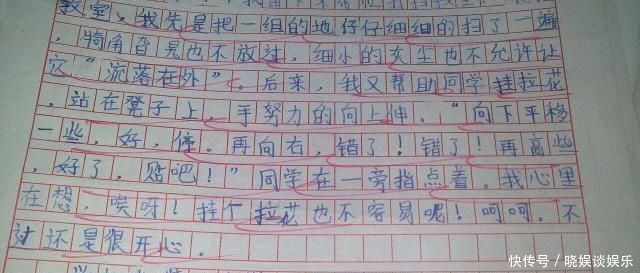 教室，我先是把一组的地仔仔细细的扫了一遍
，犄角旮旯也不放过，细小的灰尘也不允许让
它“流落在外”。后来，我又帮助同学挂拉花
，站在凳子上，手努力的向上伸，“向下平移
一些，好，停。再向右，错了！错了！再高些
，好了，贴吧！”同学在一旁指点着。我心里
在想，唉呀！挂个拉花也不容易呢！呵呵，不
过还是很开心。
快传号／晓娱谈娱乐